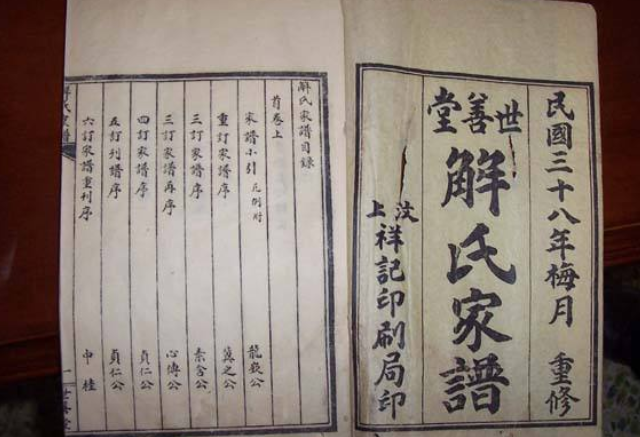 民國三十八年梅月 重修
世善堂
解氏家譜
汶上
祥記印刷局印
解氏家譜目錄
首卷上
家譜小引 凡例附 龍欽公
重訂家譜序 冀之公
三訂家譜序 素含公
三訂家譜再序 心傳公
四訂家譜序 貞仁公
五訂刊譜序 貞仁公
六訂家譜重刊序 中桂
解氏家譜
一
世善堂